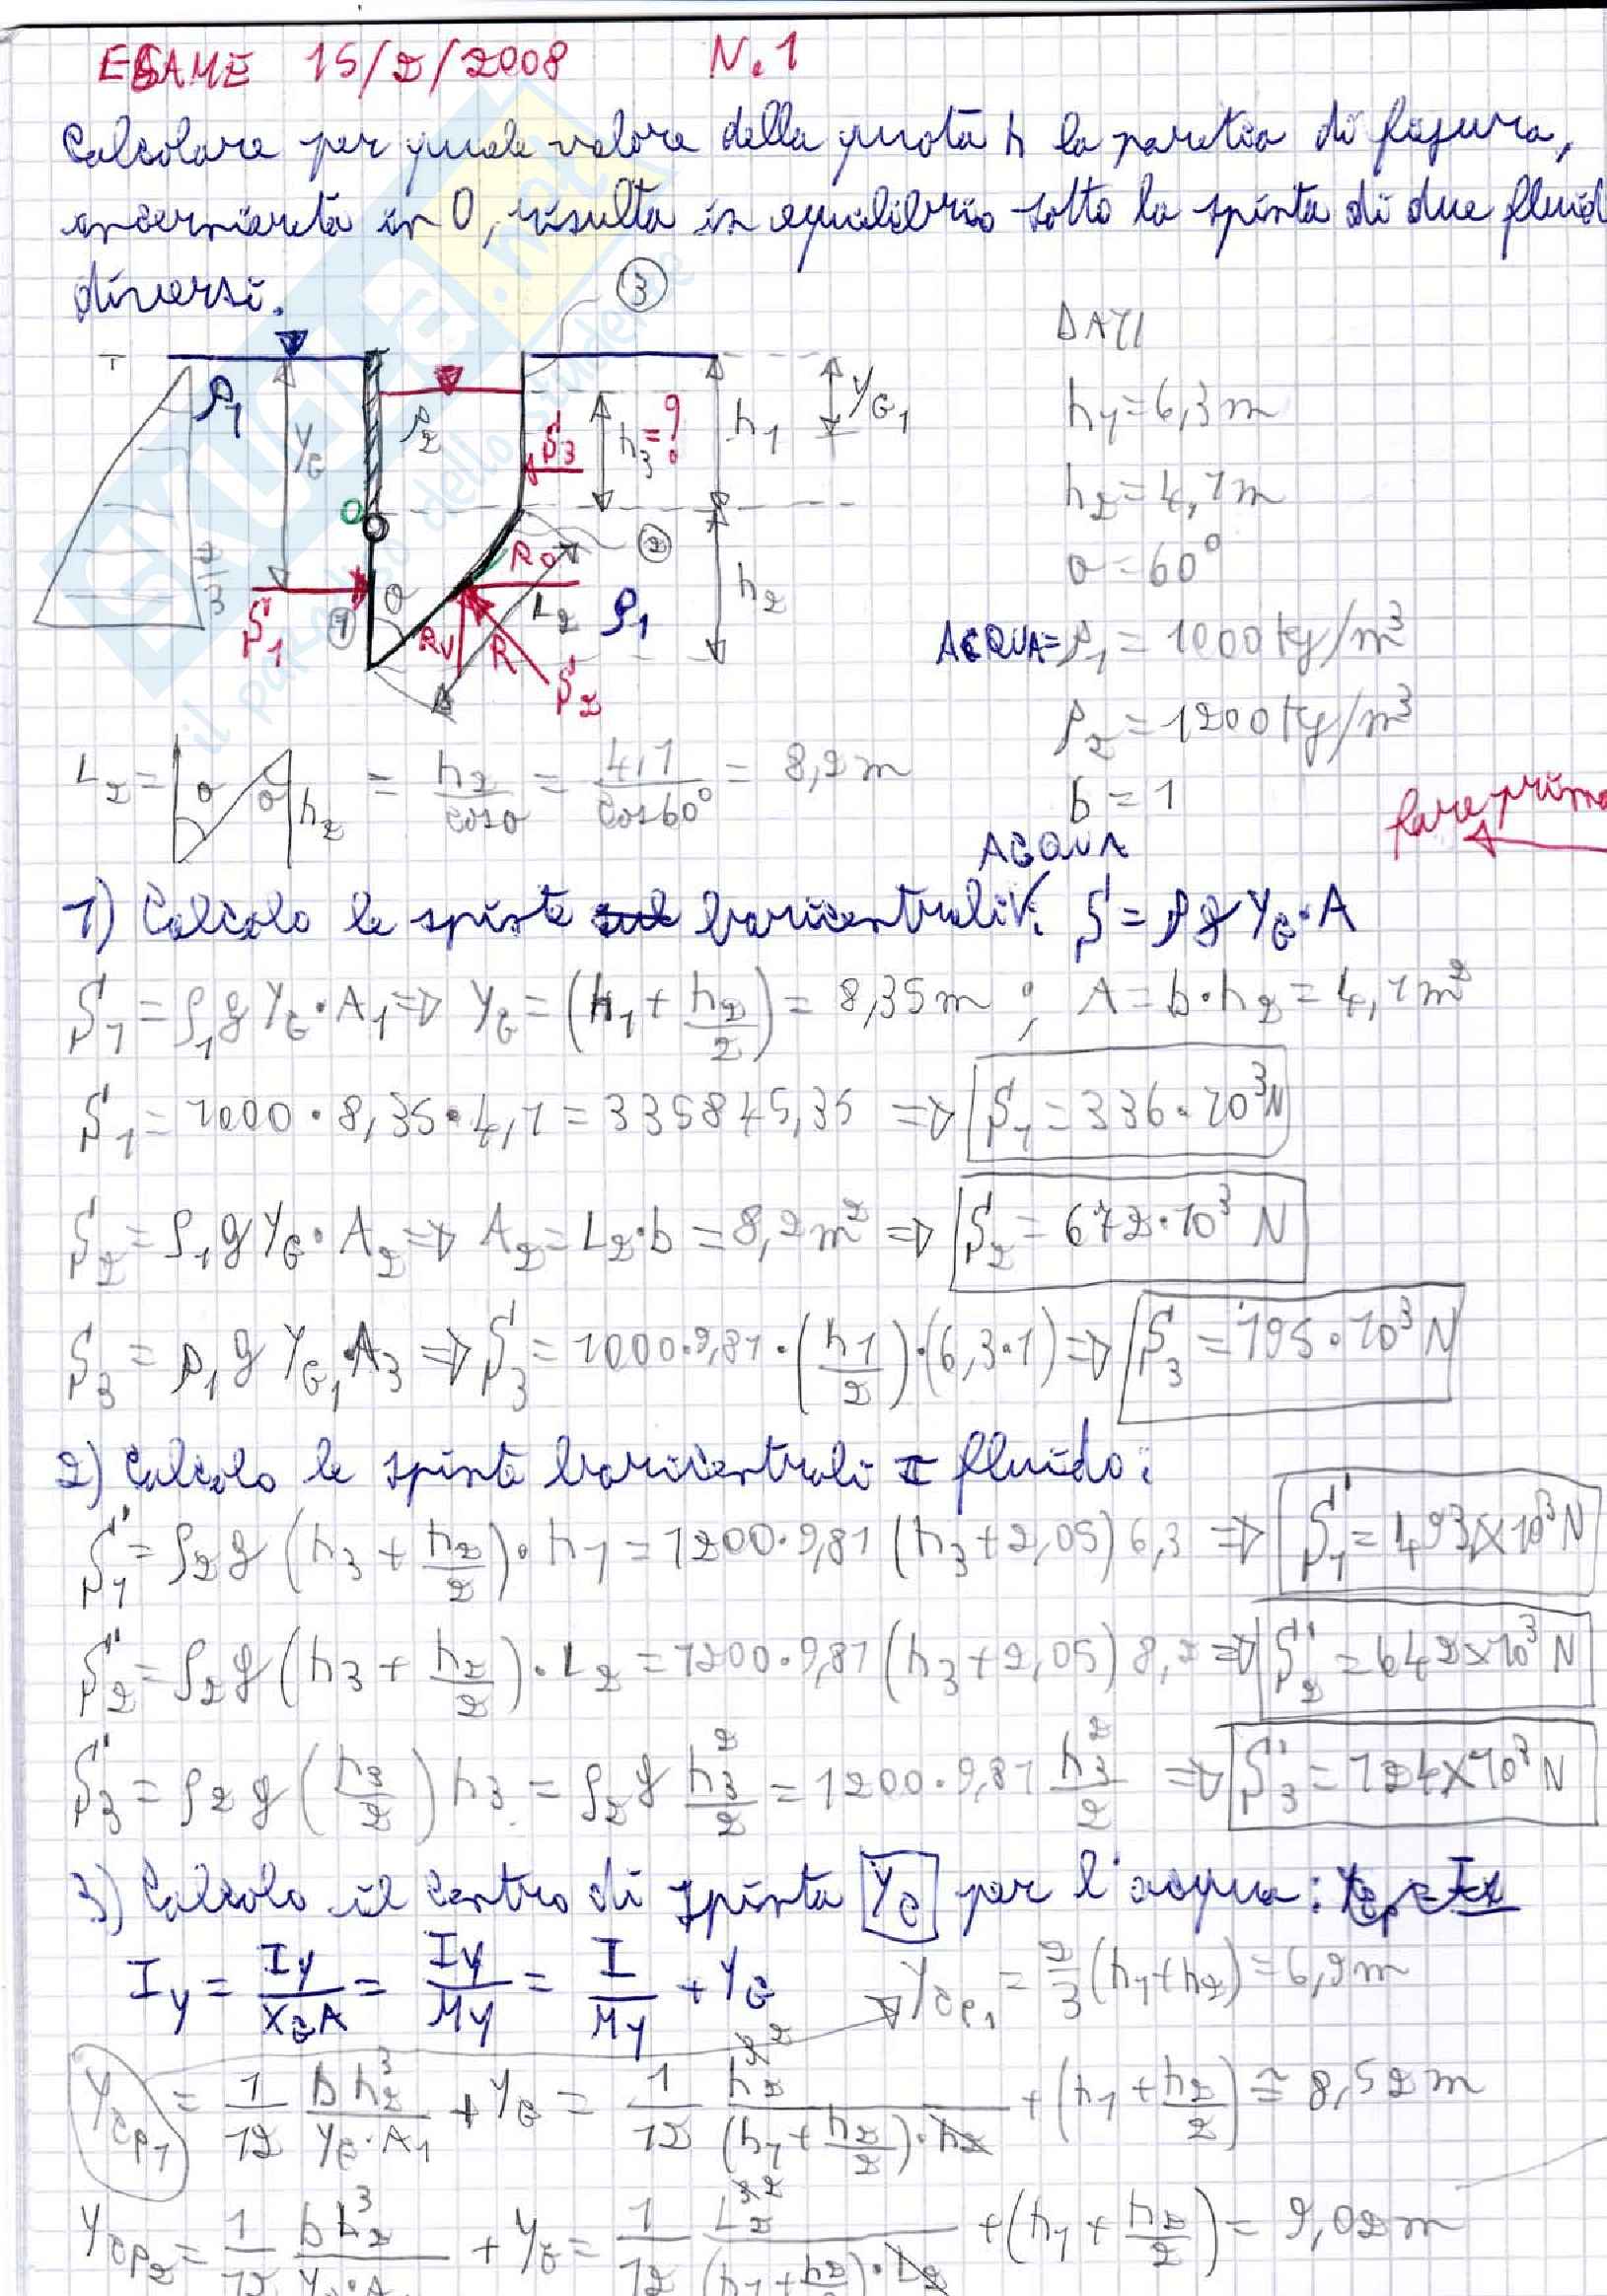 ESAME 15/2/2008 N.1
Calcolare per quale valore della quota h la paratia di figura,
incernierata in O, risulta in equilibrio sotto la spinta di due fluidi
diversi.
3
ρ1
YG
ρ2
S3
h3=?
h1
YG1
O
2
R0
L2
ρ1
h2
S1
1
θ
RV
R
S2
DATI
h1=6,3m
h2=4,1m
θ=60°
ACQUA=ρ1=1000kg/m³
ρ2=1200kg/m³
b=1
L2= θ θ h2 = h2/cosθ = 4,1/cos60° = 8,2m
fare prima
ACQUA
1) Calcolo le spinte baricentrali: S=ρgYG·A
S1=ρ1gYG·A1⇒YG=(h1+h2/2)=8,35m; A=b·h2=4,1m²
S1=1000·8,35·4,1=335845,35 ⇒ S1=336·10³N
S2=ρ1gYG·A2⇒A2=L2·b=8,2m²⇒ S2=672·10³ N
S3=ρ1gYG1·A3⇒S3=1000·9,81·(h1/2)·(6,3·1)⇒ S3=195·10³N
2) Calcolo le spinte baricentrali I fluido:
S'1=ρ2g(h3+h2/2)·h1=1200·9,81(h3+2,05)6,3 ⇒ S'1=493×10³N
S'2=ρ2g(h3+h2/2)·L2=1200·9,81(h3+2,05)8,2⇒ S'2=642×10³N
S'3=ρ2g(h3/2)h3=ρ2g h3²/2=1200·9,81 h3²/2 ⇒ S'3=124×10³N
3) Calcolo il centro di spinta YC per l'acqua:
IY= IY/XGA = IY/MY = I/MY +YG YCP1=2/3(h1+h2)=6,9m
YCP1= 1/12 bh2³/YG·A1 +YG= 1/12 h2²/(h1+h2/2)·h2 +(h1+h2/2)≅8,52m
YCP2= 1/12 bL2³ +YG= 1/12 L2² +(h1+h2/2)=9,02m
SKUOLA.net
il paradiso dello studente